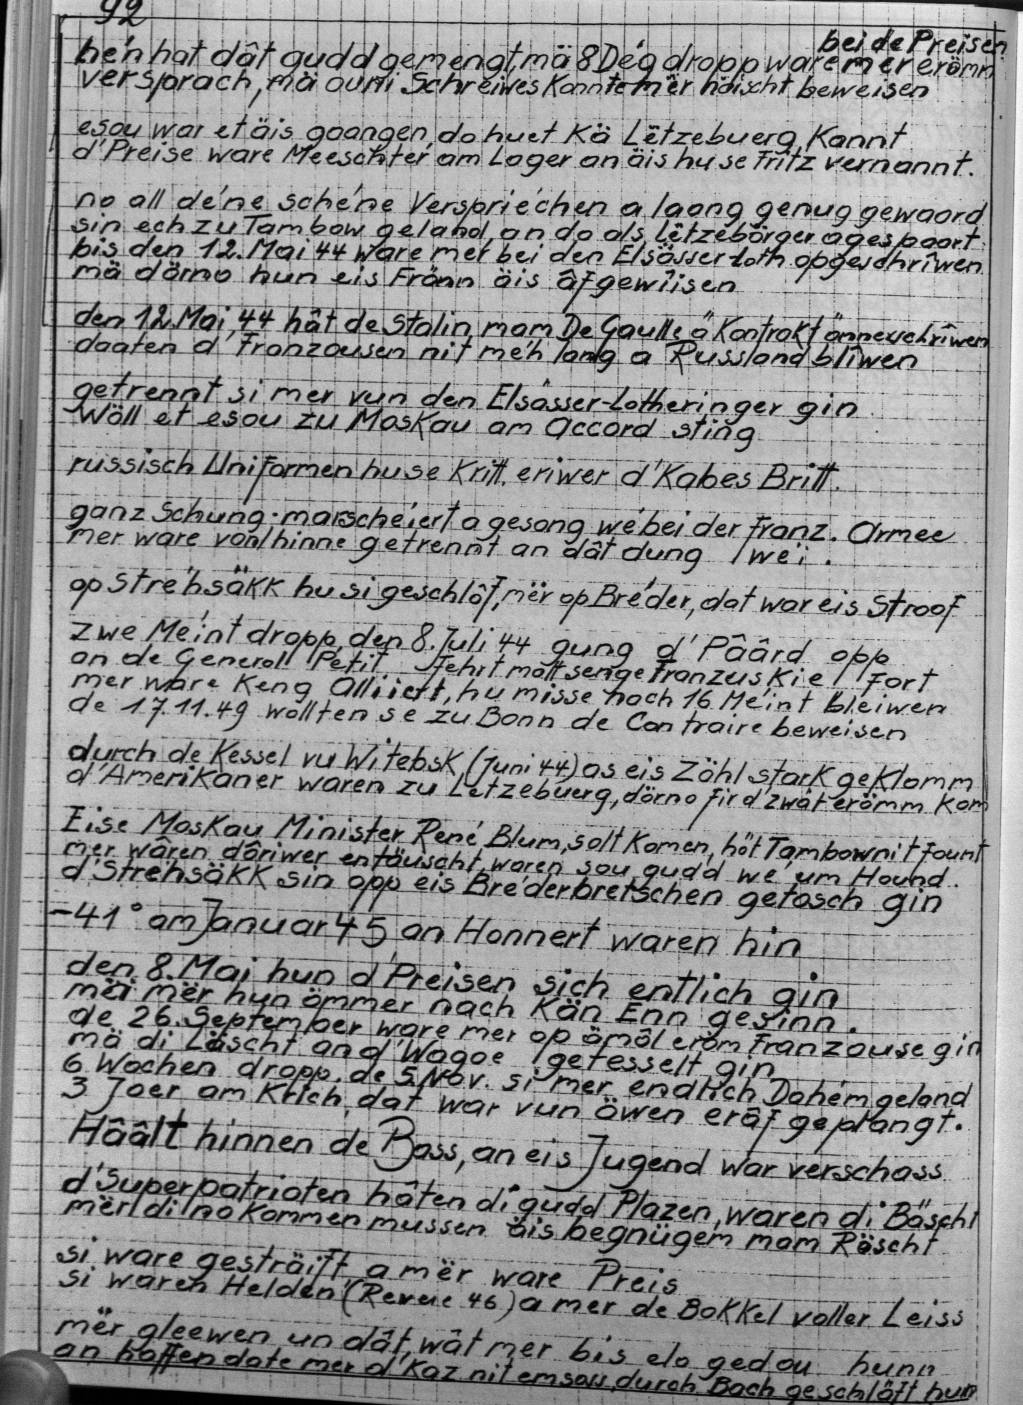 92
bei de Preisen
hén hat dât gudd gemengt, mä 8 Dég dropp ware mer erömm
versprach, mä ouni Schreiwes Konnte mër näischt beweisen
esou war et äis gaangen, do huet Kä Lëtzebuerg Kannt
d'Preise ware Meeschter am Lager an äis hu se Fritz vernannt.
no all déne schéne Verspriéchen a laang genug gewaard
sin ech zu Tambow geland, an do als Lëtzebörger agespaart
bis den 12. Mai 44 ware mer bei den Elsässer-Loth opgeschrîwen
mä dörno hun eis Frönn äis âfgewiisen
den 12. Mai 44 hât de Stalin mam De Gaulle ä Kontrakt önnerschrîwen
daaten d'Franzousen nit méh lang a Russland blîwen
getrennt si mer vun den Elsässer-Lotheringer gin
Wöll et esou zu Moskau am Accord sting
russisch Uniformen hu se Kritt, eriwer d'Kabes Britt.
ganz Schung, marschéiert a gesong wé bei der Franz. Armee
mer ware vonhinne getrennt an dât dung weï.
op Stréhsäkk hu si geschlôf, mër op Bréder, dat war eis Stroof
zwe Méint dropp, den 8. Juli 44 gung d'Pâârd opp
an de General Petit fehrt matt senge Franzuskie fort
mer ware Keng Alliiert, hu misse noch 16 Méint bleiwen
de 17.11.49 wollten se zu Bonn de Contraire beweisen
durch de Kessel vu Witebsk, (Juni 44) as eis Zöhl stark geklomm
d'Amerikaner waren zu Lëtzebuerg, dörno fir d'zwät erömm Kom
Eise Moskau Minister René Blum, solt Komen, hôt Tambow nit fount
mer wären dâriwer entäuscht, waren sou gudd wé um Hound.
d'Stréhsäkk sin opp eis Bréderbretschen getosch gin
-41° am Januar 45 an Honnert waren hin
den 8. Mai hun d'Preisen sich entlich gin
mäi mër hun ömmer nach Kän Enn gesinn.
de 26. September ware mer op ömôl eröm Franzouse gin
mä di Läscht an d'Wagoe gefesselt gin
6 Wochen dropp, de 5. Nov. si mer endlich Dahém geland
3 Joer am Krich, dat war vun öwen erâf geplangt.
Hââlt hinnen de Bass, an eis Jugend war verschass
d'Superpatrioten hâten di gudd Plazen, waren di Bäscht
mër di no Kommen mussen äis begnügem mam Räscht
si ware gesträift a mër ware Preis
si waren Helden (Revue 46) a mer de Bokkel voller Leiss
mër gleewen un dât, wât mer bis elo gedou hunn
an hoffen date mer d'Kaz nit emsoss, durch Bach geschläft hun